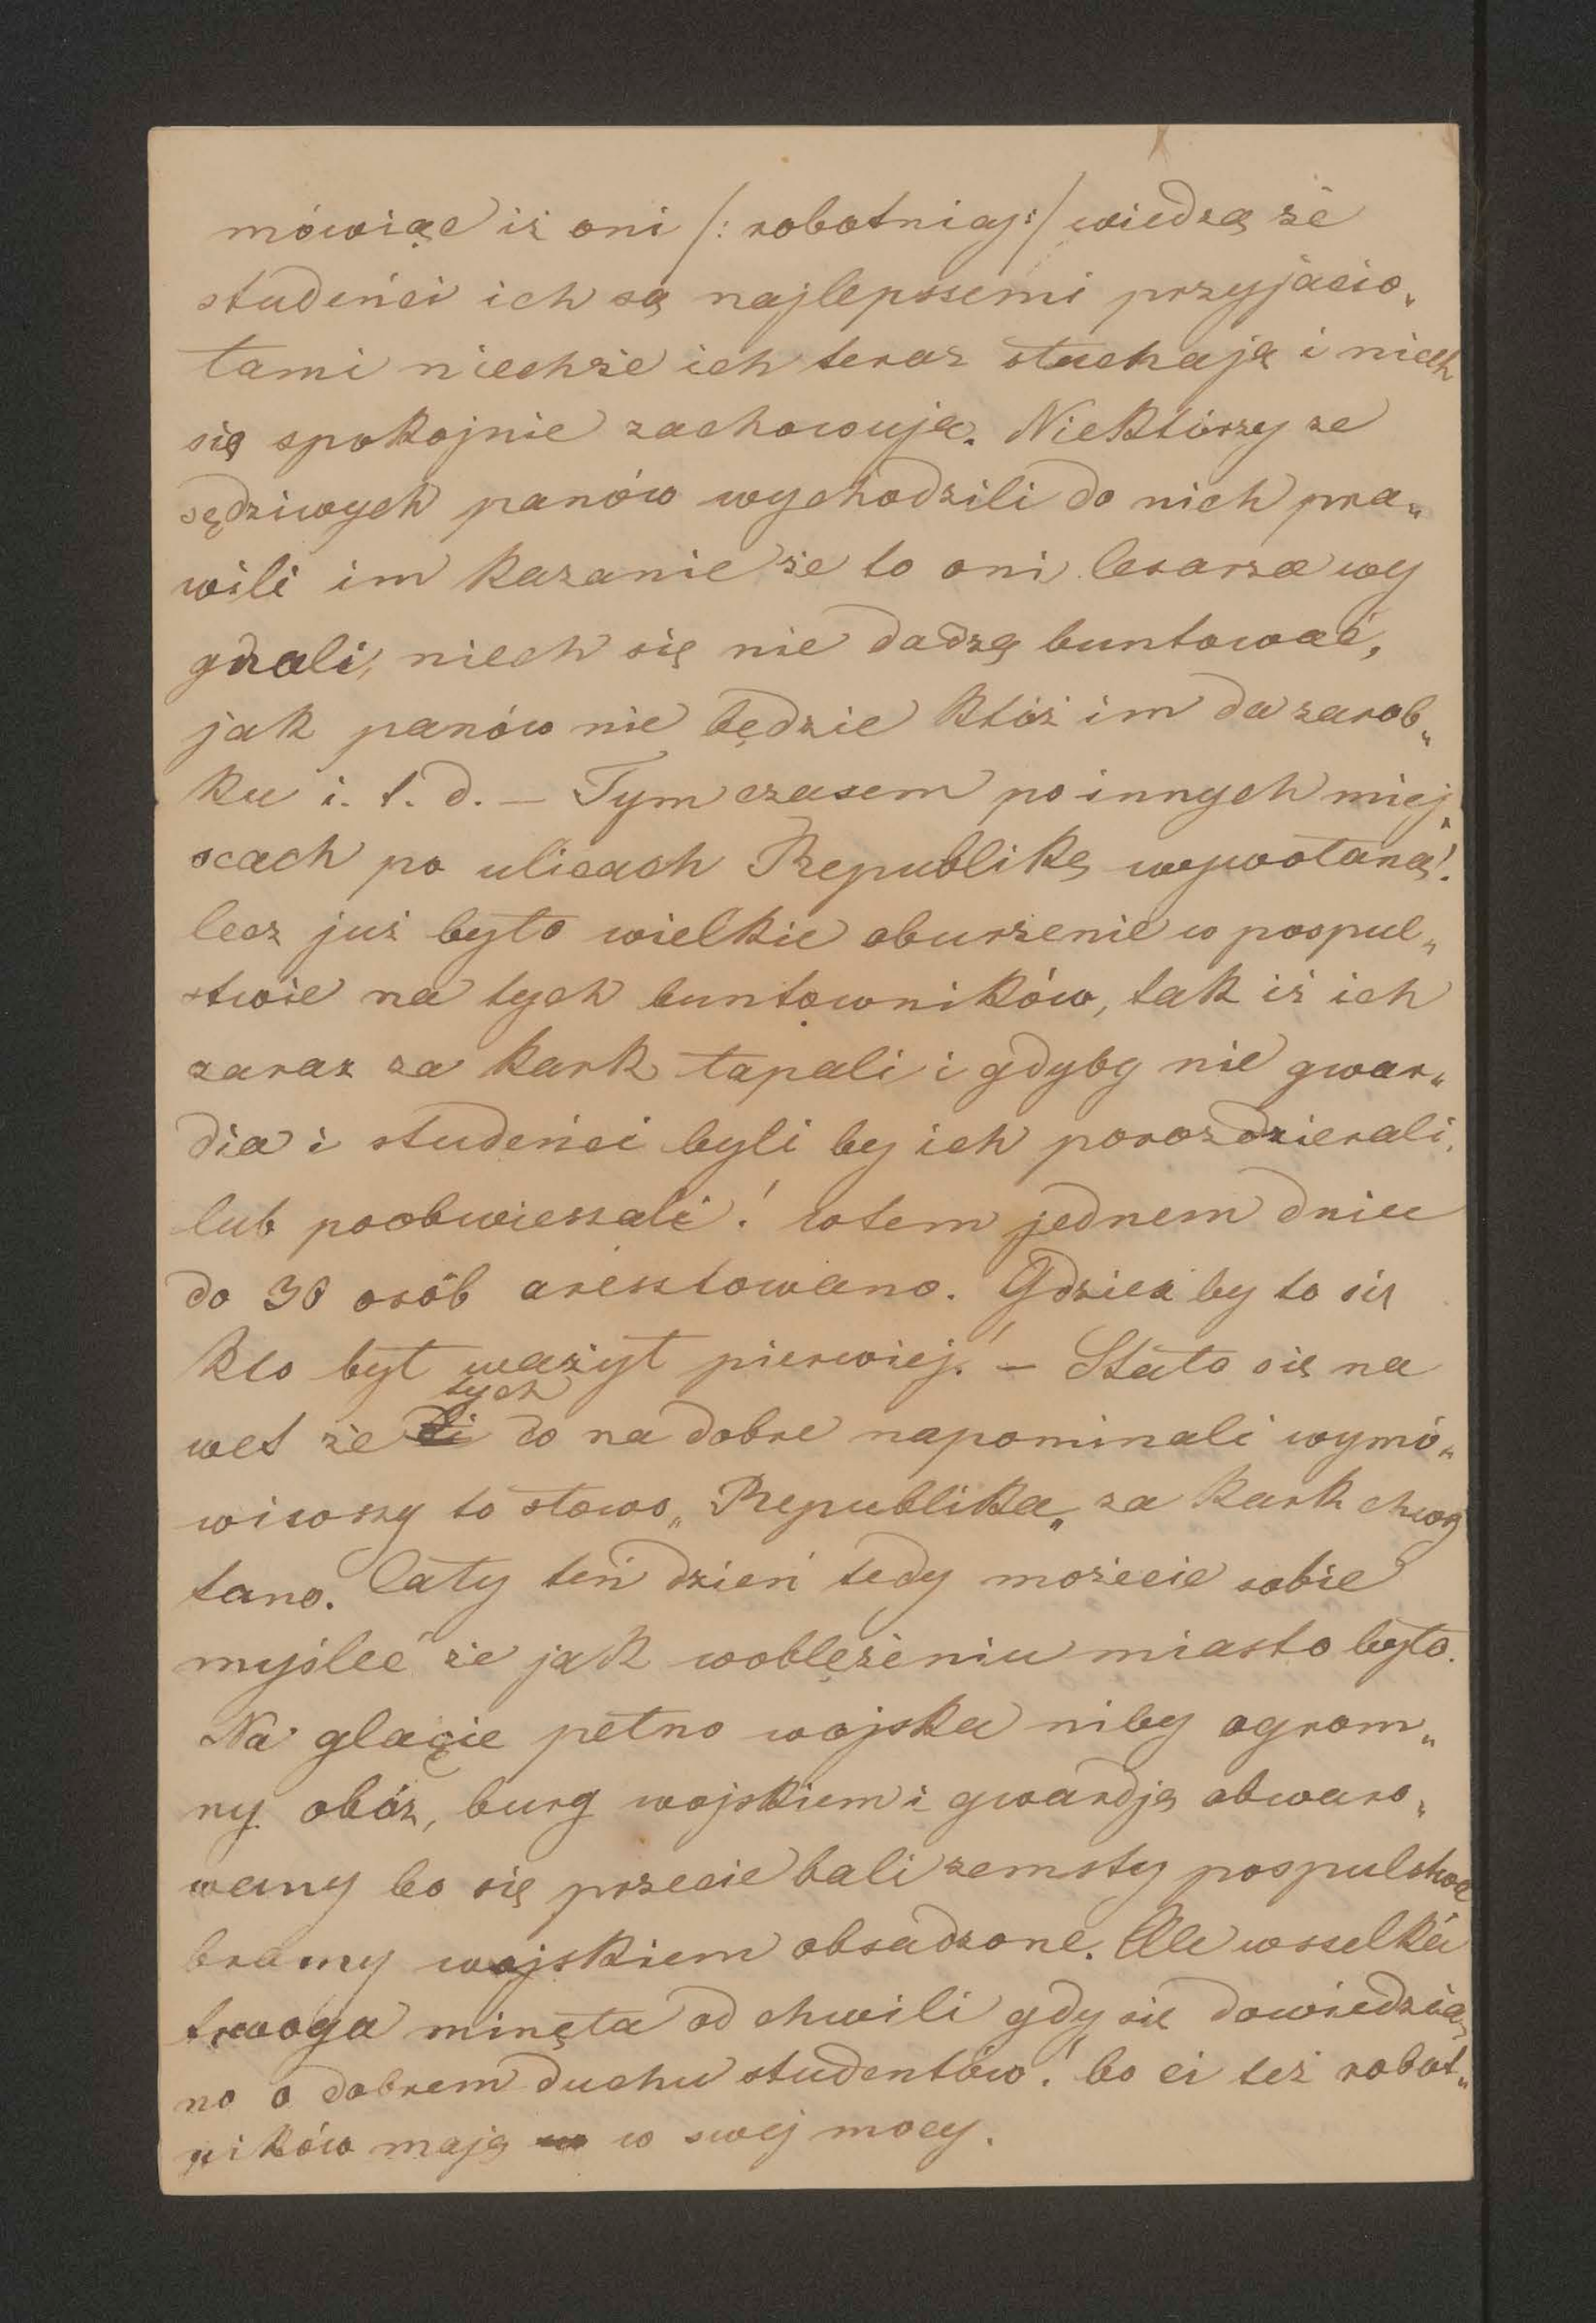 mówiąc iż oni /: robotnicy :/ wiedzą że
studeńci ich są najlepszemi przyjacio„
łami niechże ich teraz słuchają i niech
się spokojnie zachowują. Niektórzy ze
sędziwych panów wychodzili do nich pra„
wili im kazanie że to oni Cesarza wy
gnali, niech się nie dadzą buntować,
jak panów nie będzie któż im da zarob„
ku i. t. d. — Tym czasem po innych miej„
scach po ulicach Republikę wywołaną!
lecz już było wielkie oburzenie w pospul„
stwie na tych buntowników, tak iż ich
zaraz za kark łapali i gdyby nie gwar„
dia i studeńci byli by ich porozdzierali
lub poobwieszali! wtem jednem dniu
do 30 osób aresztowano. Gdzież by to się
kto był ważył pierwiej! — Stało się na
wet że tych co na dobre napominali wymó„
wiwszy to słowo „Republika„ za kark chwy
tano. Cały teń dzień tedy możecie sobie
myśleć że jak woblężeniu miasto było.
Na glacie pełno wojska niby ogrom„
ny obóz, burg wojskiem i gwardją obwaro„
wany bo się przecie bali zemsty pospulstwa
bramy wojskiem obsadzone. Ale wszelka
trwoga minęła od chwili gdy się dowiedzia„
no o dobrem duchu studentów! bo ci też robot„
ników mają w swej mocy.